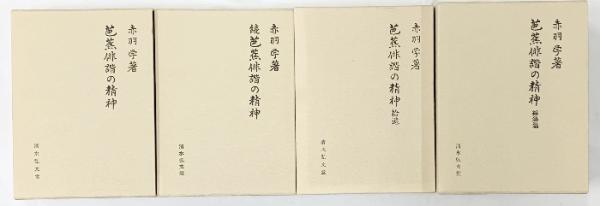 赤羽学著
芭蕉俳諧の精神
清水弘文堂
赤羽学著
続芭蕉俳諧の精神
清水弘文堂
赤羽学著
芭蕉俳諧の精神
総論
清水弘文堂
赤羽学著
芭蕉俳諧の精神
清水弘文堂